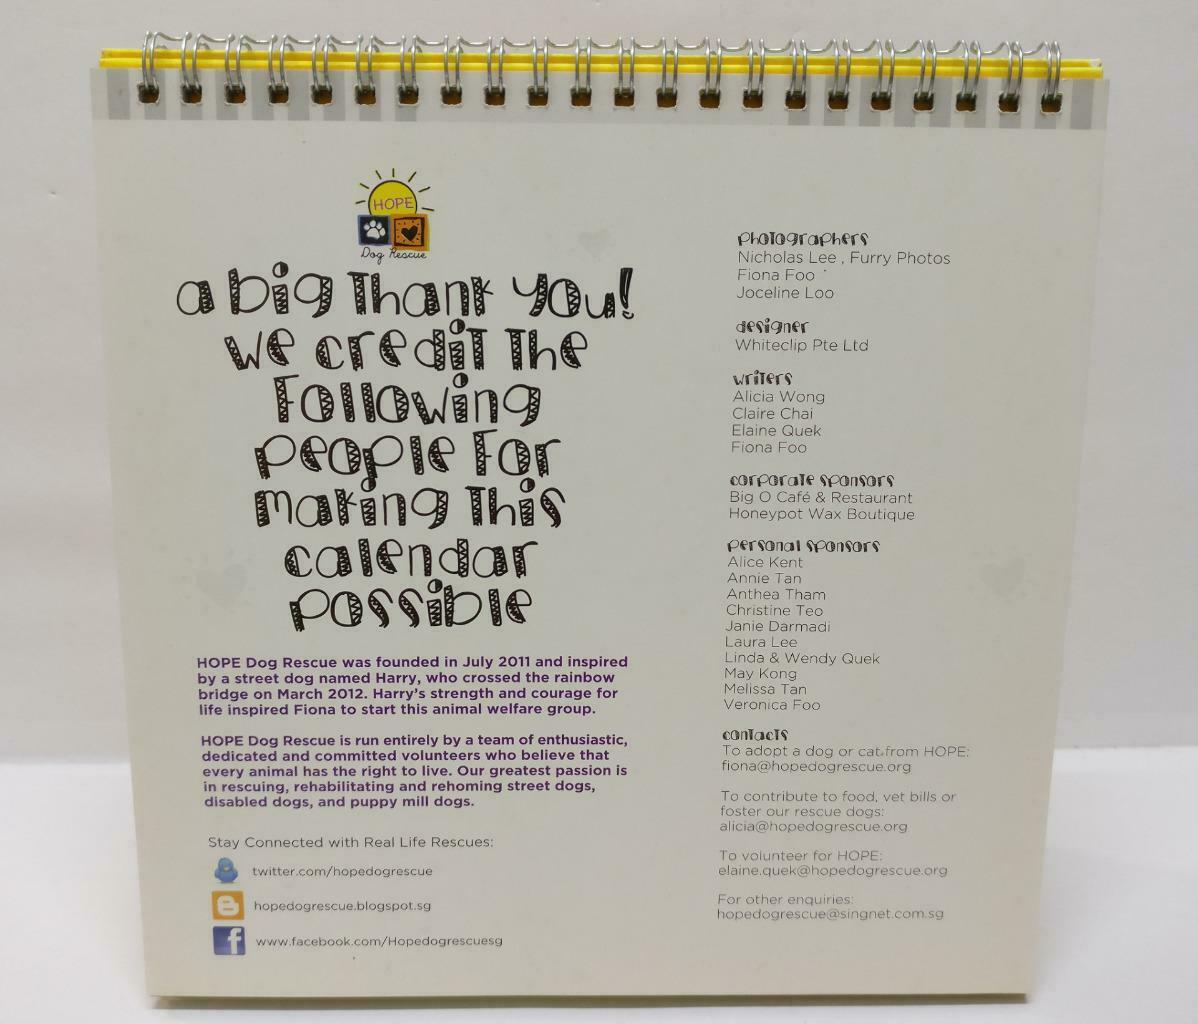 HOPE
Dog Rescue
a big Thank you!
we credit the
Following
people For
making this
calendar
possible
HOPE Dog Rescue was founded in July 2011 and inspired
by a street dog named Harry, who crossed the rainbow
bridge on March 2012. Harry's strength and courage for
life inspired Fiona to start this animal welfare group.
HOPE Dog Rescue is run entirely by a team of enthusiastic,
dedicated and committed volunteers who believe that
every animal has the right to live. Our greatest passion is
in rescuing, rehabilitating and rehoming street dogs,
disabled dogs, and puppy mill dogs.
Stay Connected with Real Life Rescues:
twitter.com/hopedogrescue
hopedogrescue.blogspot.sg
www.facebook.com/Hopedogrescuesg
photographers
Nicholas Lee , Furry Photos
Fiona Foo
Joceline Loo
designer
Whiteclip Pte Ltd
writers
Alicia Wong
Claire Chai
Elaine Quek
Fiona Foo
corporate sponsors
Big O Café & Restaurant
Honeypot Wax Boutique
personal sponsors
Alice Kent
Annie Tan
Anthea Tham
Christine Teo
Janie Darmadi
Laura Lee
Linda & Wendy Quek
May Kong
Melissa Tan
Veronica Foo
contacts
To adopt a dog or cat from HOPE:
fiona@hopedogrescue.org
To contribute to food, vet bills or
foster our rescue dogs:
alicia@hopedogrescue.org
To volunteer for HOPE:
elaine.quek@hopedogrescue.org
For other enquiries:
hopedogrescue@singnet.com.sg